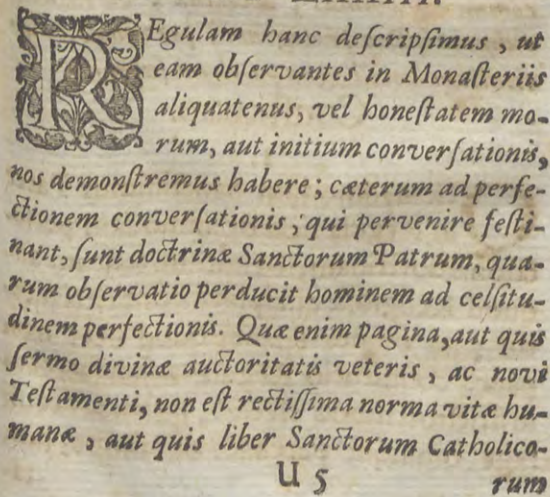 REgulam hanc deſcripſimus, ut
eam obſervantes in Monaſteriis
aliquatenus, vel honeſtatem mo-
rum, aut initium converſationis,
nos demonſtremus habere; cæterum ad perfe-
ctionem converſationis, qui pervenire feſti-
nant, ſunt doctrinæ Sanctorum Patrum, qua-
rum obſervatio perducit hominem ad celſitu-
dinem perfectionis. Quæ enim pagina, aut quis
ſermo divinæ auctoritatis veteris, ac novi
Teſtamenti, non eſt rectiſſima norma vitæ hu-
manæ, aut quis liber Sanctorum Catholico-
U 5 rum